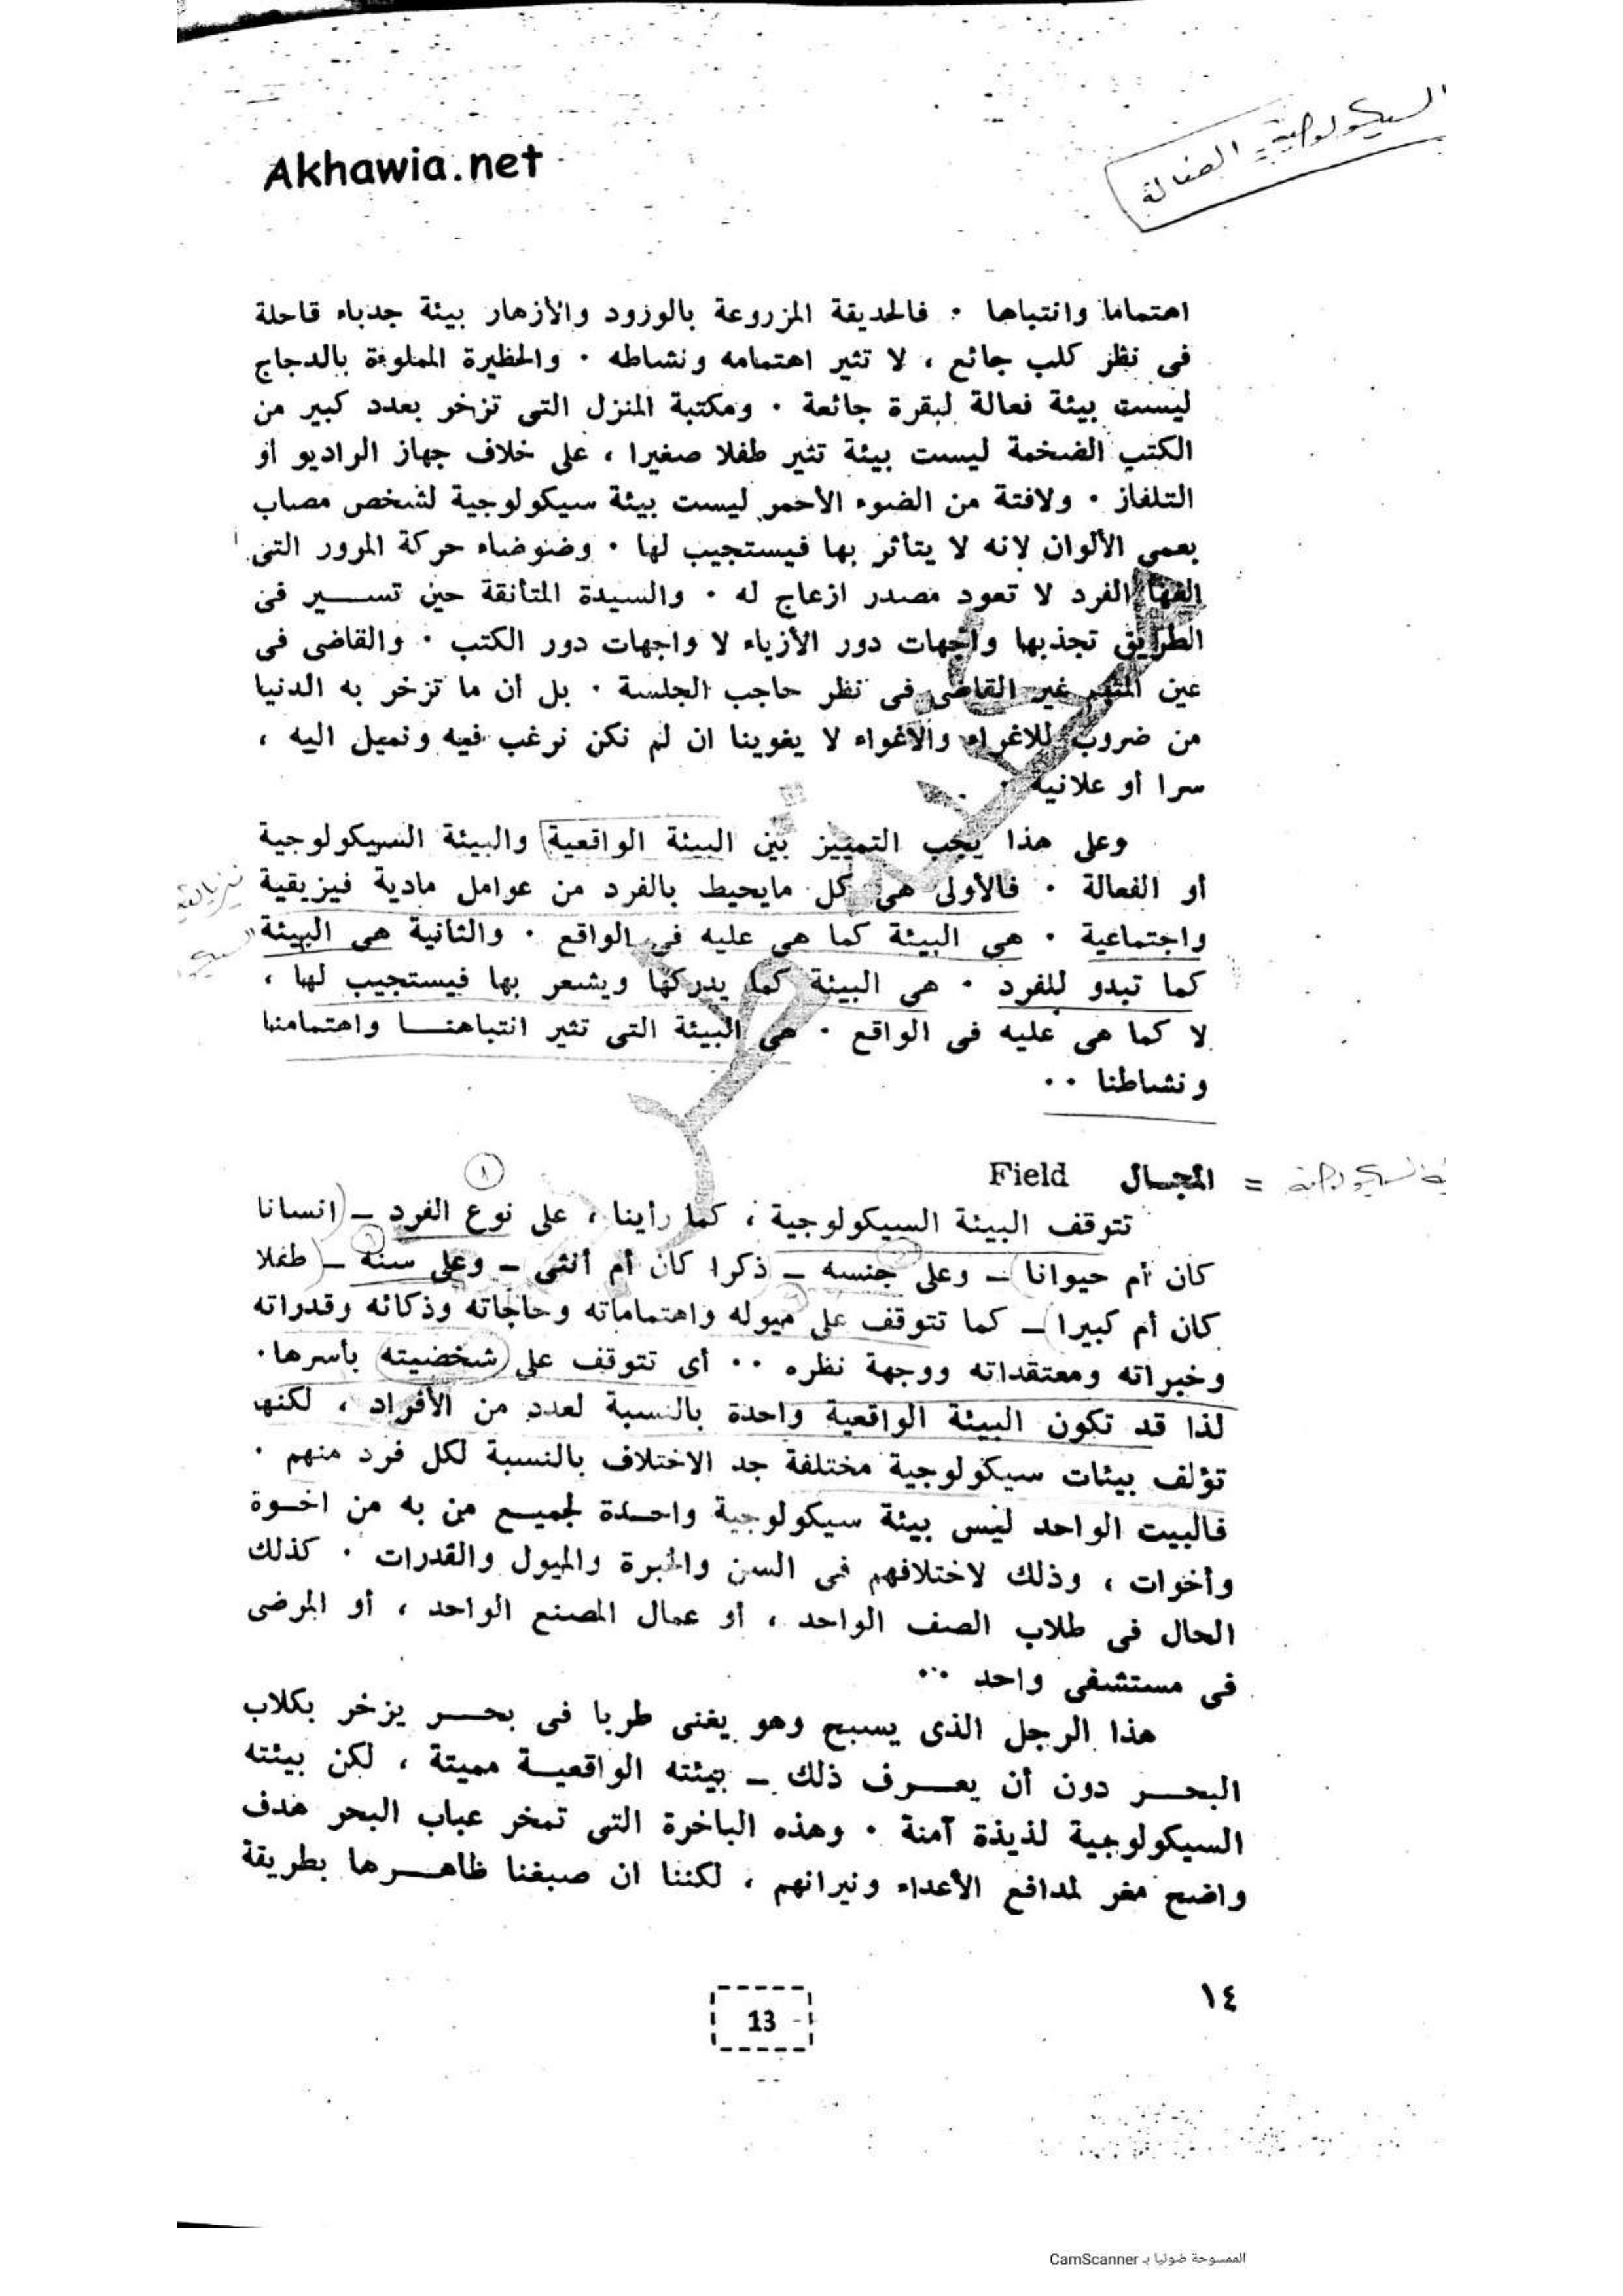 السيكولوجية = الفعالة
Akhawia.net
اهتماما وانتباها ٠ فالحديقة المزروعة بالورود والأزهار بيئة جدباء قاحلة
فى نظر كلب جائع ، لا تثير اهتمامه ونشاطه ٠ والحظيرة المملوءة بالدجاج
ليست بيئة فعالة لبقرة جائعة ٠ ومكتبة المنزل التى تزخر بعدد كبير من
الكتب الضخمة ليست بيئة تثير طفلا صغيرا ، على خلاف جهاز الراديو أو
التلفاز ٠ ولافتة من الضوء الأحمر ليست بيئة سيكولوجية لشخص مصاب
بعمى الألوان لانه لا يتأثر بها فيستجيب لها ٠ وضوضاء حركة المرور التى
الفها الفرد لا تعود مصدر ازعاج له ٠ والسيدة المتأنقة حين تســير فى
الطريق تجذبها واجهات دور الأزياء لا واجهات دور الكتب ٠ والقاضى فى
عين المتهم غير القاضى فى نظر حاجب الجلسة ٠ بل ان ما تزخر به الدنيا
من ضروب للاغراء والاغواء لا يغوينا ان لم نكن نرغب فيه ونميل اليه ،
سرا أو علانية ٠
وعلى هذا يجب التمييز بين البيئة الواقعية والبيئة السيكولوجية
أو الفعالة ٠ فالأولى هى كل مايحيط بالفرد من عوامل مادية فيزيقية
واجتماعية ٠ هى البيئة كما هى عليه فى الواقع ٠ والثانية هى البيئة
كما تبدو للفرد ٠ هى البيئة كما يدركها ويشعر بها فيستجيب لها ،
لا كما هى عليه فى الواقع ٠ هى البيئة التى تثير انتباهنــا واهتمامنا
ونشاطنا ٠٠
المجـال Field =
١
تتوقف البيئة السيكولوجية ، كما رأينا ، على نوع الفرد ــ (انسانا
كان أم حيوانا) ــ وعلى جنسه ــ ذكرا كان أم أنثى ــ وعلى سنه ــ (طفلا
كان أم كبيرا) ــ كما تتوقف على ميوله واهتماماته وحاجاته وذكائه وقدراته
وخبراته ومعتقداته ووجهة نظره ٠٠ أى تتوقف على (شخصيته) بأسرها ٠
لذا قد تكون البيئة الواقعية واحدة بالنسبة لعدد من الأفراد ، لكنها
تؤلف بيئات سيكولوجية مختلفة جد الاختلاف بالنسبة لكل فرد منهم ٠
فالبيت الواحد ليس بيئة سيكولوجية واحـدة لجميـع من به من اخـوة
وأخوات ، وذلك لاختلافهم فى السن والخبرة والميول والقدرات ٠ كذلك
الحال فى طلاب الصف الواحد ، أو عمال المصنع الواحد ، أو المرضى
فى مستشفى واحد ٠٠٠
هذا الرجل الذى يسبح وهو يغنى طربا فى بحـر يزخر بكلاب
البحـر دون أن يعـرف ذلك ــ بيئته الواقعيـة مميتة ، لكن بيئته
السيكولوجية لذيذة آمنة ٠ وهذه الباخرة التى تمخر عباب البحر هدف
واضح مغر لمدافع الأعداء ونيرانهم ، لكننا ان صبغنا ظاهـرها بطريقة
١٤
13
الممسوحة ضوئيا بـ CamScanner